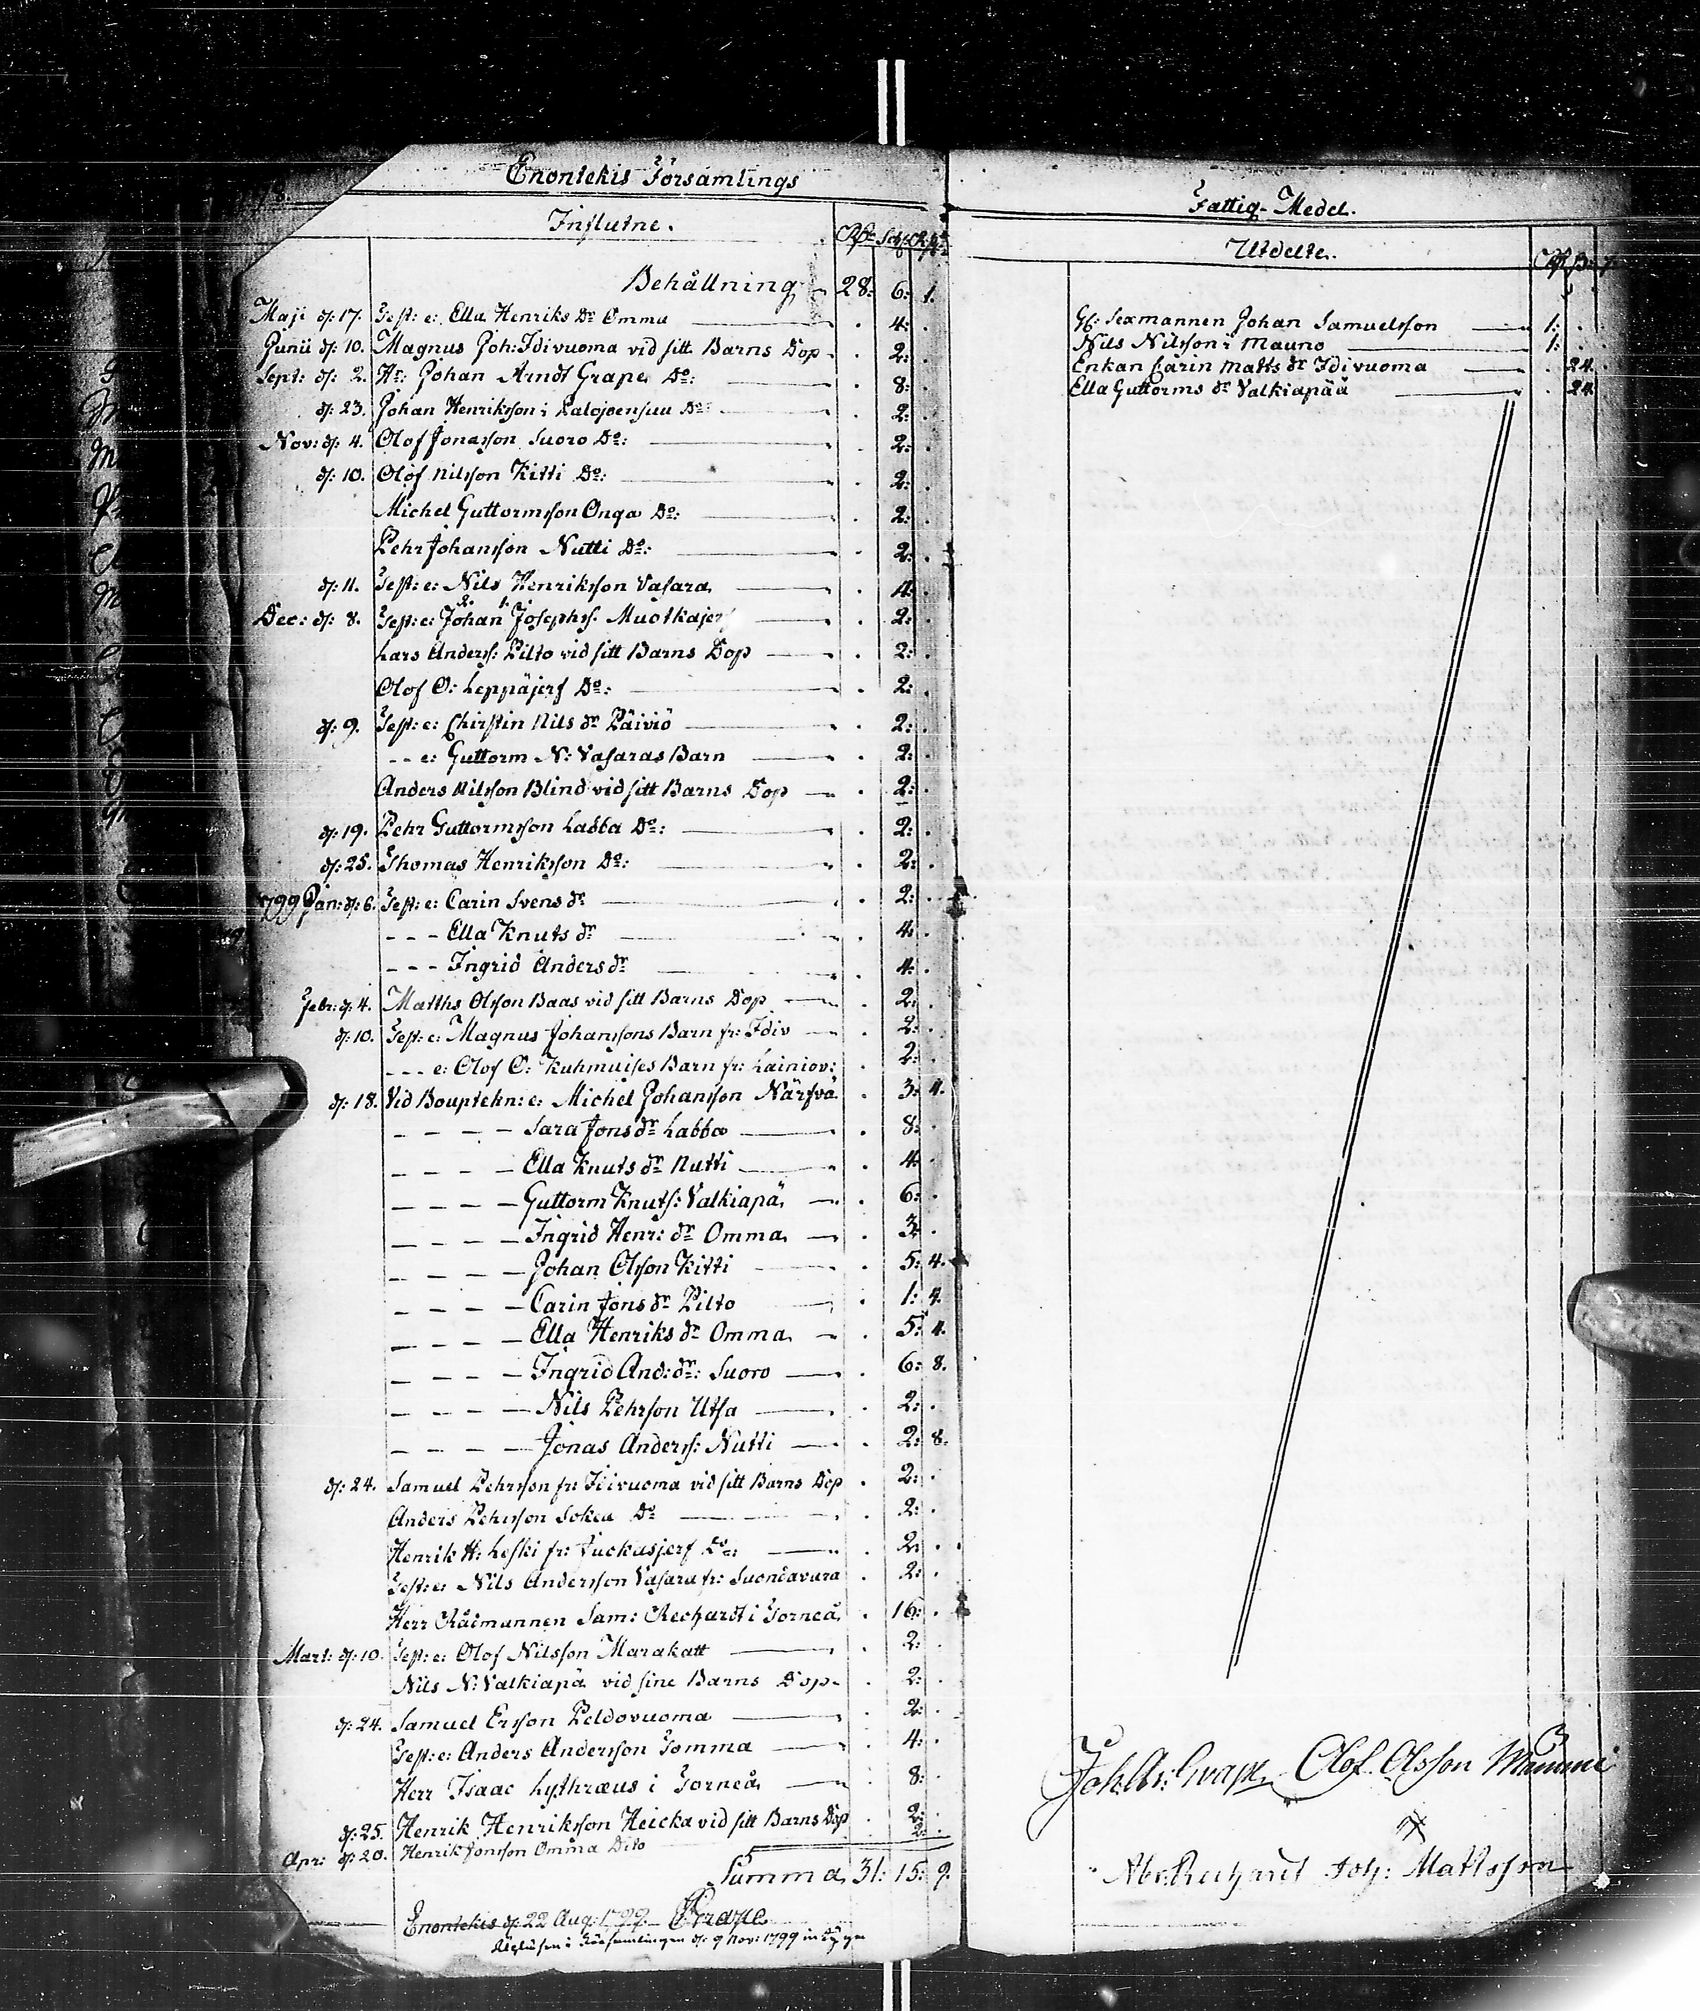 Enontekis Församlings
Influtne.
Behållning 28: 6: 1.
Maji d: 17. Test: e: Ella Henriks dr Omma . 4: .
Junii d: 10. Magnus Joh: Idivuoma vid sitt Barns Dop . 2: .
Sept: d: 2. Hr: Johan Arndt Grape Do: . 8: .
d: 23. Johan Henriksson i Palojoensuu Do: . 2: .
Nov: d: 4. Olof Jonasson Suoro Do: . 2: .
d: 10. Olof Nilsson Kitti Do: . 2: .
Michel Guttormsson Onga Do: . 2: .
Pehr Johansson Nutti Do: . 2: .
d: 11. Test: e: Nils Henriksson Vasara . 4: .
Dec: d: 8. Test: e: Johan Josephss. . 2: .
Lars Anderss: Pilto vid sitt Barns Dop . 2: .
Olof O: Leppäjerf Do: . 2: .
d: 9. Test: e: Chirstin Nils dr Päiviö . 2: .
- - e: Guttorm N: Vasaras Barn . 2: .
Anders Nilsson Blind vid sitt Barns Dop . 2: .
d: 19. Pehr Guttormsson Labba Do: . 2: .
d: 25. Thomas Henriksson Do: . 2: .
1799 Jan: d: 6. Test: e: Carin Svens dr . 2: .
- - - Ella Knuts dr . 4: .
- - - Ingrid Anders dr . 4: .
Febr: d: 4. Matths Olsson Baas vid sitt Barns Dop . 2: .
d: 10. Test: e: Magnus Johanssons Barn fr: Idiv . 2: .
- - - e: Olof O: Kuhmuises Barn fr: Lainiov: . 2: .
d: 18. Vid Bouptekn: e: Michel Johansson Närfvä . 3: 4.
- - - - Sara Jons dr Labba . 8: .
- - - - Ella Knuts dr Nutti . 4: .
- - - - Guttorm Knuts: Valkiapä . 6: .
- - - - Ingrid Henr: dr Omma . 3: .
- - - - Johan Olsson Kitti . 5: 4.
- - - - Carin Jons dr Pilto . 1: 4.
- - - - Ella Henriks dr Omma . 5: 4.
- - - - Ingrid And: dr: Suoro . 6: 8.
- - - - Nils Pehrson Utsa . 2: .
- - - - Jonas Anderss: Nutti . 2: 8.
d: 24. Samuel Pehrsson fr: Idivuoma vid sitt Barns Dop . 2: .
Anders Pehrsson Sokea Do . 2: .
Henrik H: Leski fr: Juckasjerf Do: . 2: .
Test: e: Nils Andersson Vasara fr: Suondavara . 2: .
Herr Rådmannen Sam: Rechardt i Torneå . 16: .
Mart: d: 10. Test: e: Olof Nilsson Marakatt . 2: .
Nils N: Valkiapä vid sine Barns Dop . 2: .
d: 24. Samuel Ersson Peldovuoma . 2: .
Test: e: Anders Andersson Tomma . 4: .
Herr Isaac Lythræus i Torneå . 8: .
d: 25. Henrik Henriksson Heicka vid sitt Barns Dop . 2: .
Apr: d: 20. Henrik Jonsson Omma Dito 2: .
Summa 31: 15: 9.
Enontekis d: 22 Aug: 1799. Grape
d: 9 Nov: 1799
Fattig-Medel.
Utdelte.
Gf: Sexmannen Johan Samuelsson 1: . .
Nils Nilsson i Mauno 1: . .
Enkan Carin Matts dr Idivuoma . 24. .
Ella Guttorms dr Valkiapää . 24. .
Joh: Ar: Grape Olof Olsson Mauni
Abr: Rechardt Joh: Mattsson